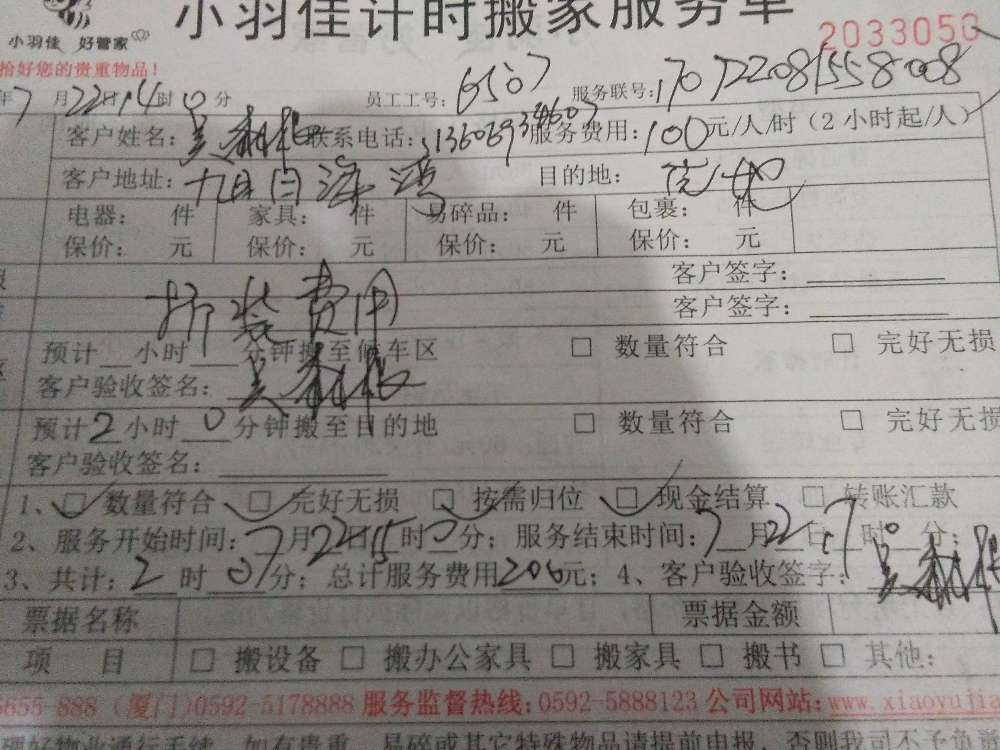 小羽佳计时搬家服务单
小羽佳 好管家
2033050
拾好您的贵重物品!
年7月22日14时0分 员工工号:6507 服务联号:170722081558008
客户姓名: 联系电话: 服务费用:100元/人/时(2小时起/人)
客户地址: 目的地:
电器: 件 家具: 件 易碎品: 件 包裹: 件
保价: 元 保价: 元 保价: 元 保价: 元
客户签字:
拆装费用
客户签字:
预计 小时 分钟搬至候车区 □ 数量符合 □ 完好无损
客户验收签名:
预计2小时0分钟搬至目的地 □ 数量符合 □ 完好无损
客户验收签名:
1、☑数量符合 ☑完好无损 ☑按需归位 ☑现金结算 □转账汇款
2、服务开始时间:7月22日15时0分;服务结束时间:7月22日17时0分;
3、共计:2时07分;总计服务费用206元;4、客户验收签字:
票据名称 票据金额
项 目 □ 搬设备 □ 搬办公家具 □ 搬家具 □ 搬书 □ 其他:
5655 888 (厦门)0592-5178888 服务监督热线:0592-5888123 公司网站:www.xiaoyujia
理好物业通行手续,如有贵重、易碎或其它特殊物品请提前申报,否则我司不予负